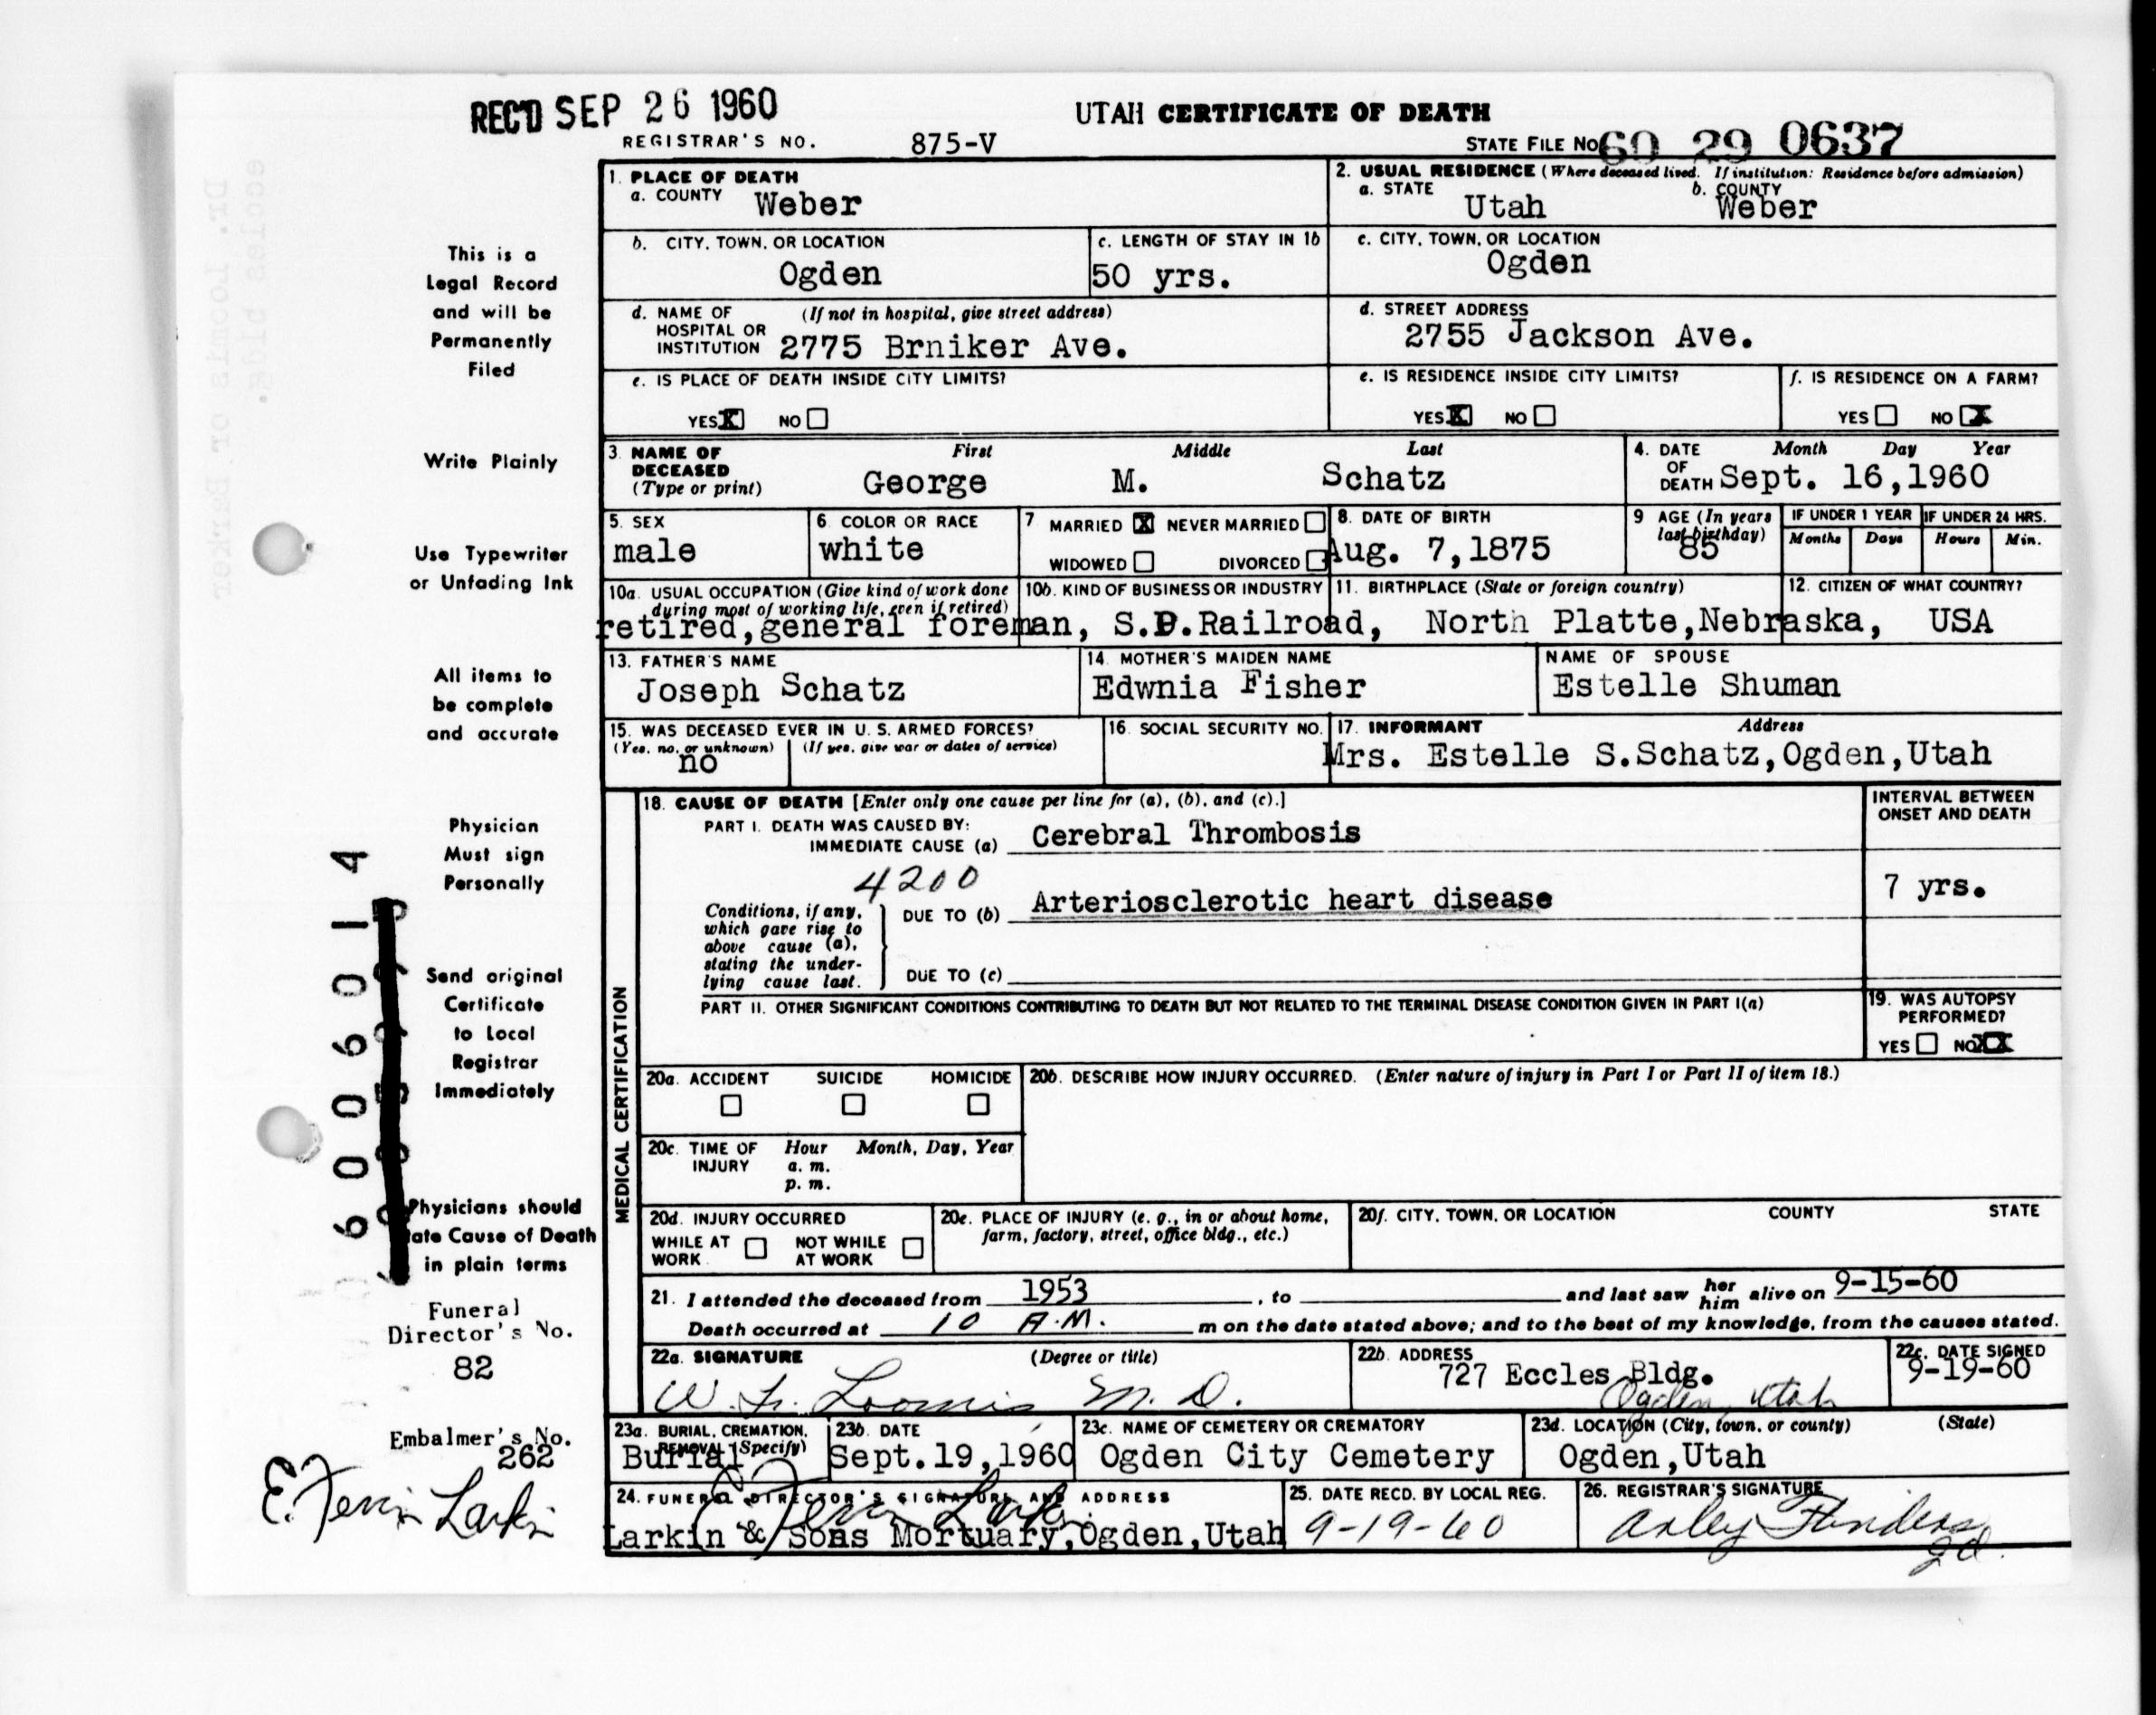 REC'D SEP 26 1960
UTAH CERTIFICATE OF DEATH
REGISTRAR'S NO. 875-V
STATE FILE NO. 60 29 0637
1. PLACE OF DEATH
a. COUNTY Weber
2. USUAL RESIDENCE (Where deceased lived. If institution: Residence before admission)
a. STATE Utah b. COUNTY Weber
b. CITY, TOWN, OR LOCATION Ogden
c. LENGTH OF STAY IN 1b 50 yrs.
c. CITY, TOWN, OR LOCATION Ogden
d. NAME OF HOSPITAL OR INSTITUTION (If not in hospital, give street address) 2775 Brniker Ave.
d. STREET ADDRESS 2755 Jackson Ave.
e. IS PLACE OF DEATH INSIDE CITY LIMITS?
YES X NO
e. IS RESIDENCE INSIDE CITY LIMITS?
YES X NO
f. IS RESIDENCE ON A FARM?
YES NO X
3. NAME OF DECEASED (Type or print)
First Middle Last
George M. Schatz
4. DATE OF DEATH Month Day Year
Sept. 16,1960
5. SEX male
6. COLOR OR RACE white
7 MARRIED X NEVER MARRIED
WIDOWED DIVORCED
8. DATE OF BIRTH Aug. 7,1875
9 AGE (In years last birthday) 85
IF UNDER 1 YEAR Months Days
IF UNDER 24 HRS. Hours Min.
10a. USUAL OCCUPATION (Give kind of work done during most of working life, even if retired)
10b. KIND OF BUSINESS OR INDUSTRY
11. BIRTHPLACE (State or foreign country)
12. CITIZEN OF WHAT COUNTRY?
retired,general foreman, S.P.Railroad, North Platte,Nebraska, USA
13. FATHER'S NAME Joseph Schatz
14. MOTHER'S MAIDEN NAME Edwnia Fisher
NAME OF SPOUSE Estelle Shuman
15. WAS DECEASED EVER IN U. S. ARMED FORCES?
(Yes, no, or unknown) (If yes, give war or dates of service)
no
16. SOCIAL SECURITY NO.
17. INFORMANT Address
Mrs. Estelle S.Schatz,Ogden,Utah
MEDICAL CERTIFICATION
18. CAUSE OF DEATH [Enter only one cause per line for (a), (b), and (c).]
INTERVAL BETWEEN ONSET AND DEATH
PART I. DEATH WAS CAUSED BY:
IMMEDIATE CAUSE (a) Cerebral Thrombosis
4200
Conditions, if any, which gave rise to above cause (a), stating the underlying cause last.
DUE TO (b) Arteriosclerotic heart disease
7 yrs.
DUE TO (c)
PART II. OTHER SIGNIFICANT CONDITIONS CONTRIBUTING TO DEATH BUT NOT RELATED TO THE TERMINAL DISEASE CONDITION GIVEN IN PART I(a)
19. WAS AUTOPSY PERFORMED?
YES NO X
20a. ACCIDENT SUICIDE HOMICIDE
20b. DESCRIBE HOW INJURY OCCURRED. (Enter nature of injury in Part I or Part II of item 18.)
20c. TIME OF INJURY Hour Month, Day, Year
a. m.
p. m.
20d. INJURY OCCURRED
WHILE AT WORK NOT WHILE AT WORK
20e. PLACE OF INJURY (e. g., in or about home, farm, factory, street, office bldg., etc.)
20f. CITY, TOWN, OR LOCATION COUNTY STATE
21. I attended the deceased from 1953, to and last saw her him alive on 9-15-60
Death occurred at 10 A.M. m on the date stated above; and to the best of my knowledge, from the causes stated.
22a. SIGNATURE (Degree or title)
Loomis M. D.
22b. ADDRESS 727 Eccles Bldg.
Ogden, Utah
22c. DATE SIGNED 9-19-60
23a. BURIAL, CREMATION, REMOVAL (Specify) Burial
23b. DATE Sept.19,1960
23c. NAME OF CEMETERY OR CREMATORY Ogden City Cemetery
23d. LOCATION (City, town, or county) (State)
Ogden,Utah
24. FUNERAL DIRECTOR'S SIGNATURE AND ADDRESS
Larkin & Sons Mortuary,Ogden,Utah
25. DATE RECD. BY LOCAL REG. 9-19-60
26. REGISTRAR'S SIGNATURE
This is a
Legal Record
and will be
Permanently
Filed
Write Plainly
Use Typewriter
or Unfading Ink
All items to
be complete
and accurate
Physician
Must sign
Personally
Send original
Certificate
to Local
Registrar
Immediately
Physicians should
ate Cause of Death
in plain terms
Funeral
Director's No.
82
Embalmer's No.
262
Larkin
60090914